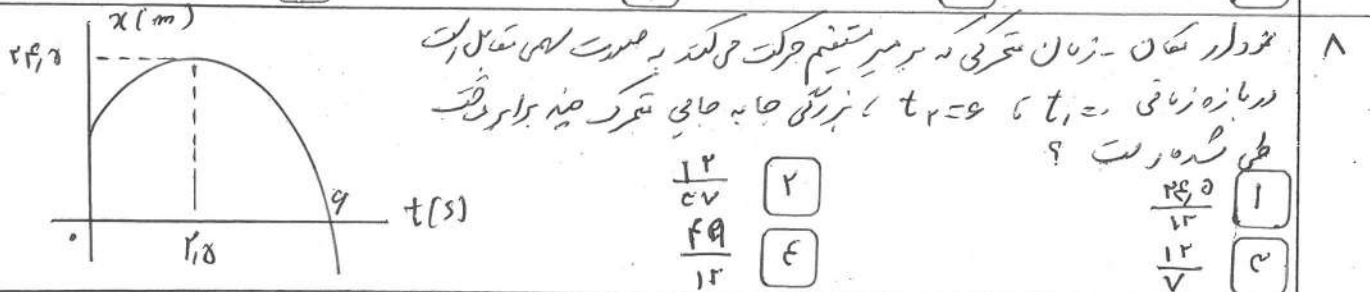 ۸
نمودار مکان - زمان متحرکی که بر مسیر مستقیم حرکت می‌کند به صورت سهمی مقابل است
در بازه زمانی t₁=۰ تا t₂=۶ ؛ بزرگی جا به جایی متحرک چند برابر مسافت
طی شده است ؟
۱ ۲۴٫۵/۱۲
۲ ۱۲/۳۷
۳ ۱۲/۷
۴ ۴۹/۱۲
x(m)
۲۴٫۵
۲٫۵
۶
۰
t(s)